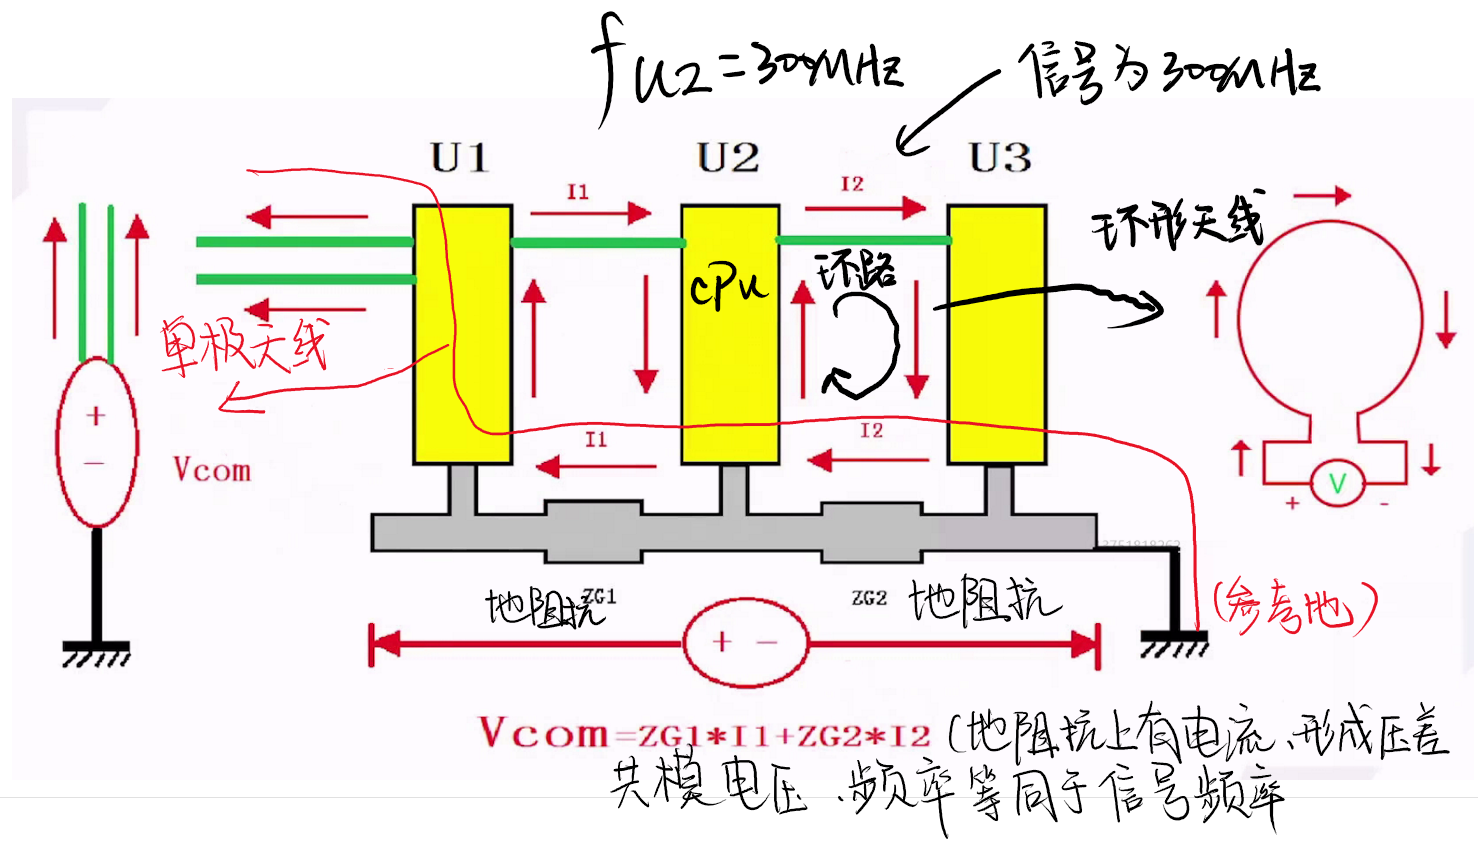 fu2=300MHz
信号为300MHz
U1
U2
U3
I1
I2
环形天线
环路
CPU
单极天线
+
−
Vcom
I1
I2
V
+
-
13751818262
地阻抗
ZG1
ZG2
地阻抗
(参考地)
+ −
Vcom=ZG1*I1+ZG2*I2 (地阻抗上有电流、形成压差
共模电压、频率等同于信号频率